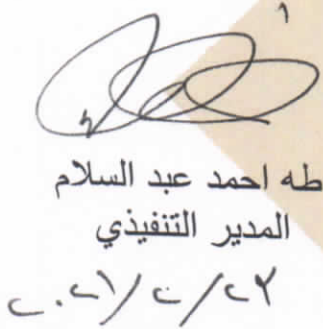 طه احمد عبد السلام
المدير التنفيذي
٢٠٢١/٢/٢٣